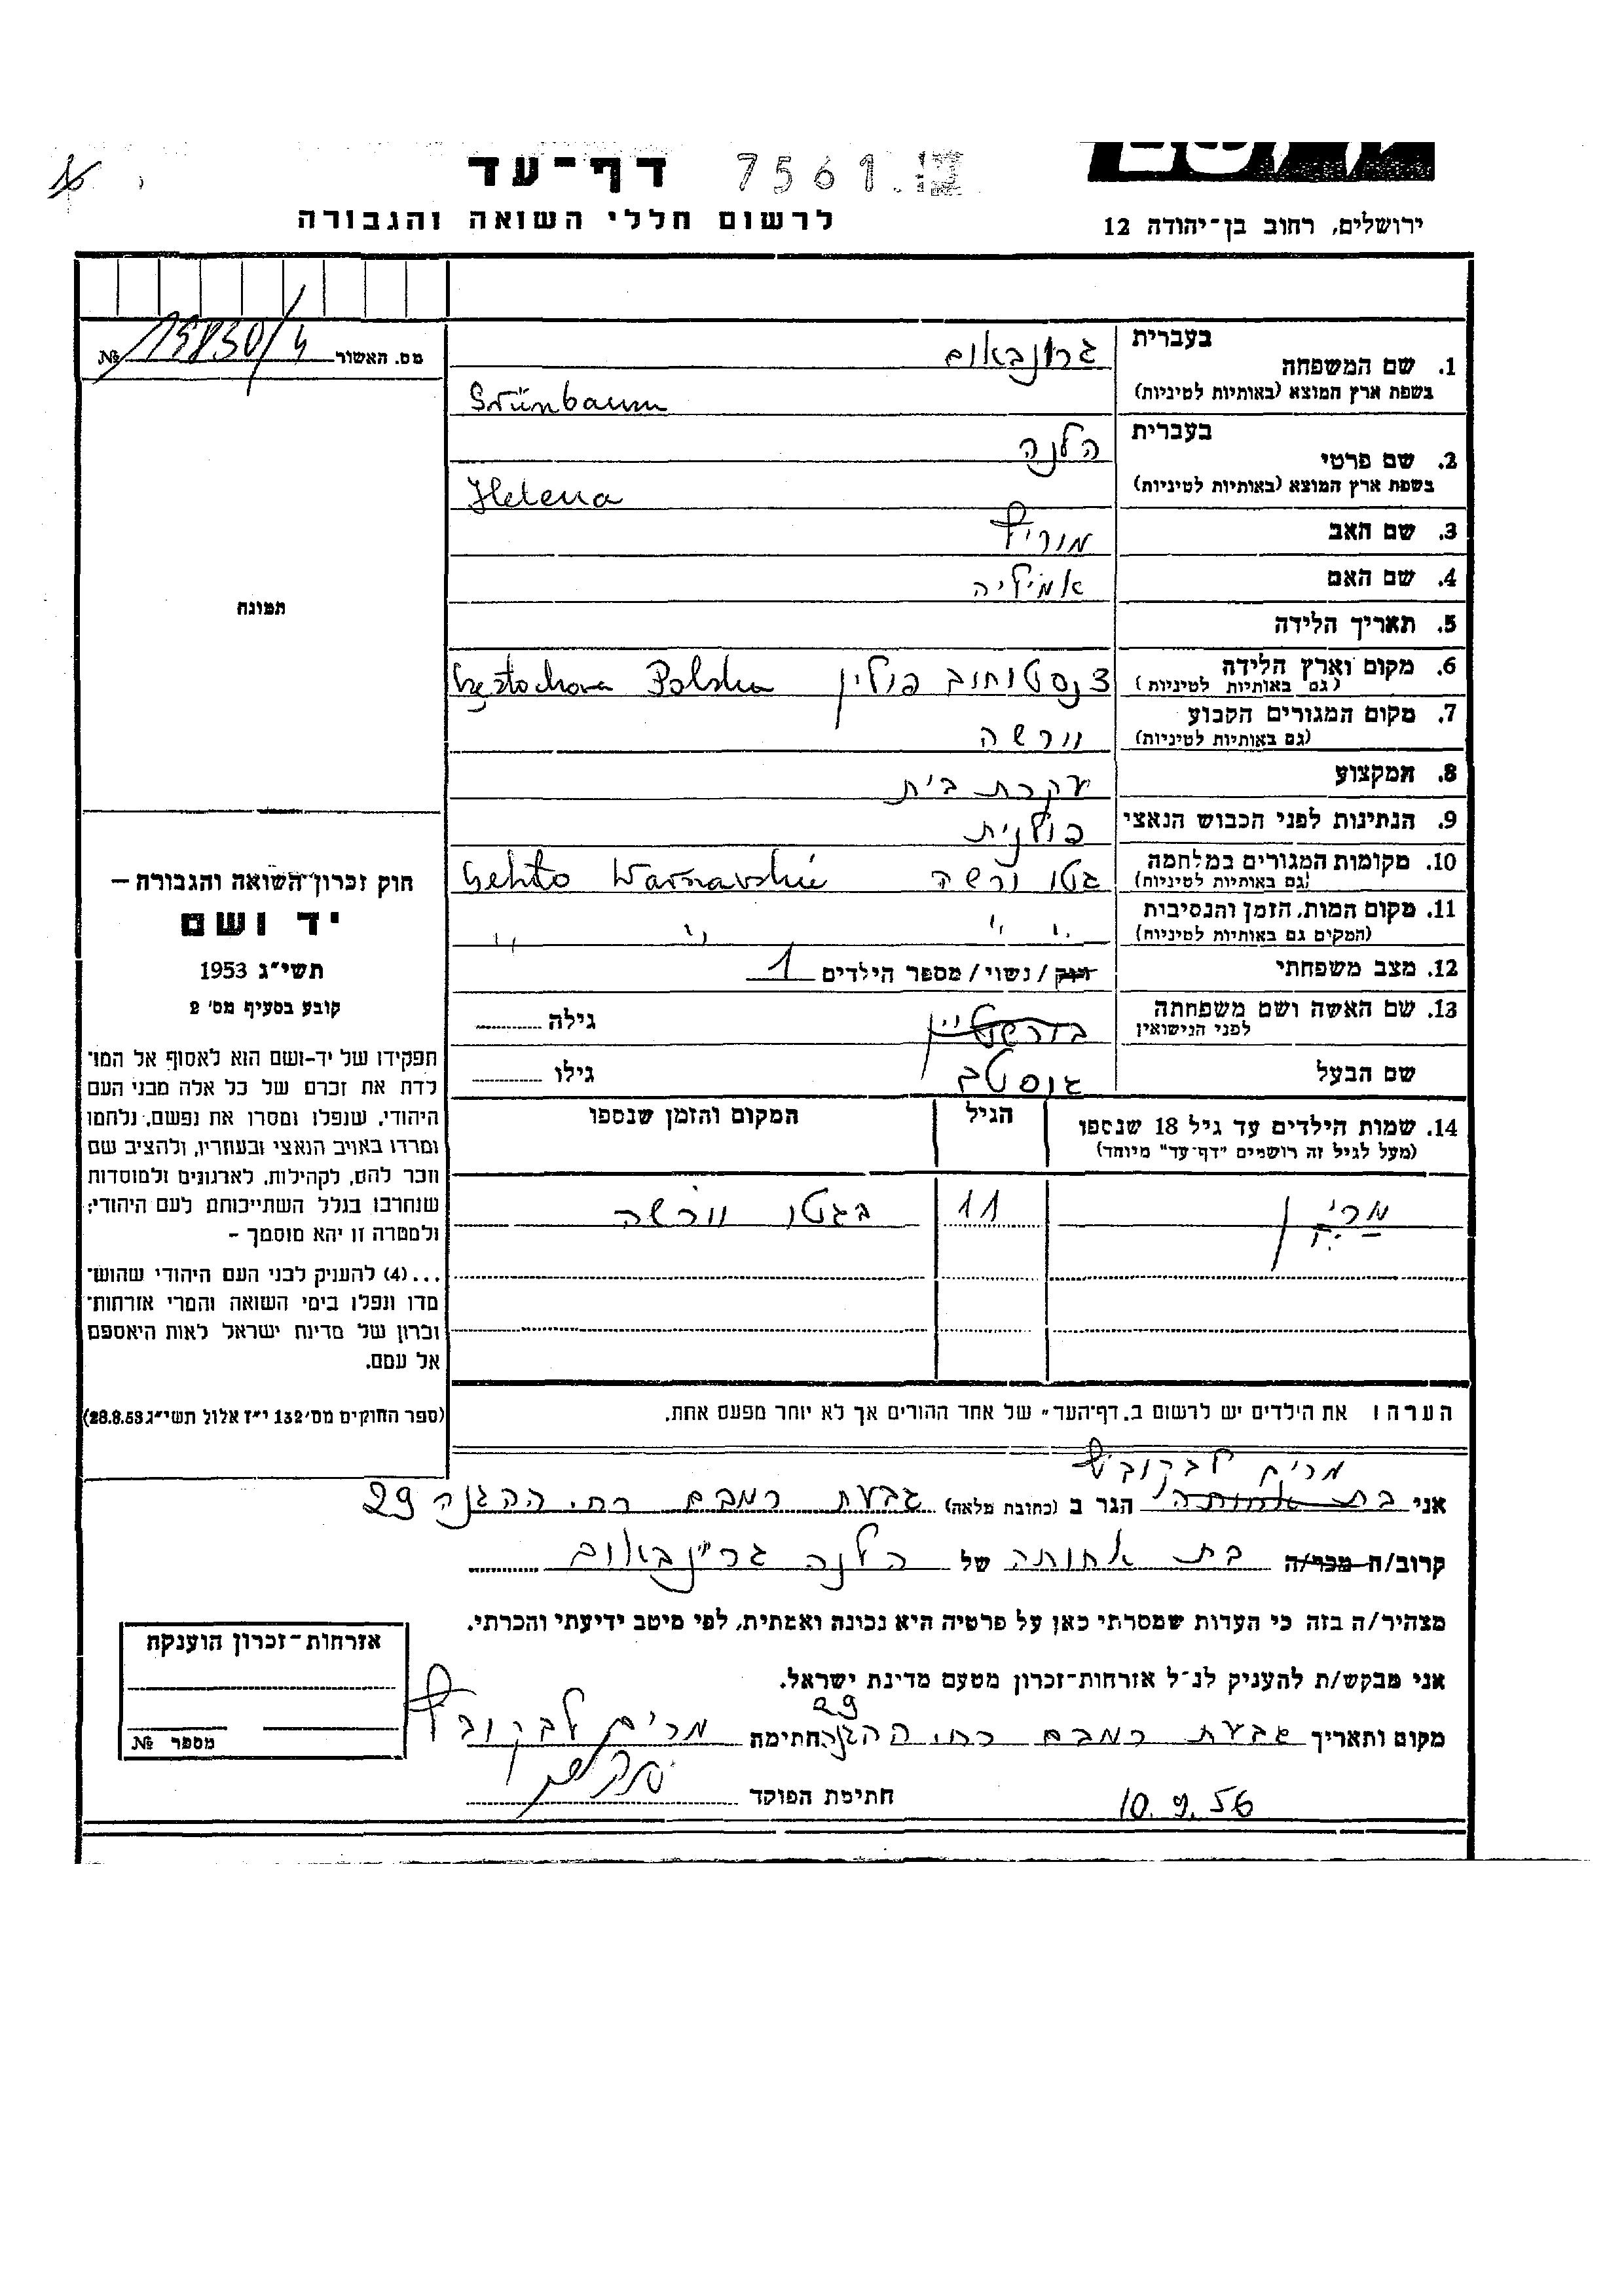 דף-עד 7561
לרשום חללי השואה והגבורה
ירושלים, רחוב בן-יהודה 12
מס. האשור 15830/4 №
1. שם המשפחה בעברית גרונבאום
בשפת ארץ המוצא (באותיות לטיניות) Grünbaum
2. שם פרטי בעברית הלנה
בשפת ארץ המוצא (באותיות לטיניות) Helena
3. שם האב מוריץ
4. שם האם אמיליה
5. תאריך הלידה
6. מקום וארץ הלידה צנסטוחוב פולין Częstochowa Polska
(גם באותיות לטיניות)
7. מקום המגורים הקבוע וורשה
(גם באותיות לטיניות)
8. המקצוע עקרת בית
9. הנתינות לפני הכבוש הנאצי פולנית
10. מקומות המגורים במלחמה גטו ורשה Gehto Warszawskie
(גם באותיות לטיניות)
11. מקום המות, הזמן והנסיבות " " " "
(המקום גם באותיות לטיניות)
12. מצב משפחתי רווק / נשוי / מספר הילדים 1
13. שם האשה ושם משפחתה גילה
לפני הנישואין
שם הבעל גוסטב גילו
14. שמות הילדים עד גיל 18 שנספו הגיל המקום והזמן שנספו
(מעל לגיל זה רושמים "דף-עד" מיוחד)
11 בגטו וורשה
הערה: את הילדים יש לרשום ב"דף-העד" של אחד ההורים אך לא יותר מפעם אחת.
תמונה
חוק זכרון השואה והגבורה —
יד ושם
תשי"ג 1953
קובע בסעיף מס' 2
תפקידו של יד-ושם הוא לאסוף אל המו־
לדת את זכרם של כל אלה מבני העם
היהודי, שנפלו ומסרו את נפשם, נלחמו
ומרדו באויב הנאצי ובעוזריו, ולהציב שם
וזכר להם, לקהילות, לארגונים ולמוסדות
שנחרבו בגלל השתייכותם לעם היהודי;
ולמטרה זו יהא מוסמך –
...(4) להעניק לבני העם היהודי שהוש־
מדו ונפלו בימי השואה והמרי אזרחות־
זכרון של מדינת ישראל לאות היאספם
אל עמם.
(ספר החוקים מס' 132 י"ז אלול תשי"ג 28.8.53)
מרים לבקוביץ
אני בת אחותה הגר ב (כתובת מלאה) גבעת רמבם רח. ההגנה 29
קרוב/ה מכר/ה בת אחותה של הלנה גרינבאום
מצהיר/ה בזה כי העדות שמסרתי כאן על פרטיה היא נכונה ואמתית, לפי מיטב ידיעתי והכרתי.
אני מבקש/ת להעניק לנ"ל אזרחות-זכרון מטעם מדינת ישראל.
29
מקום ותאריך גבעת רמבם רח. ההגנה חתימה מרים לבקוביץ
10.9.56 חתימת הפוקד
אזרחות-זכרון הוענקה
מספר №